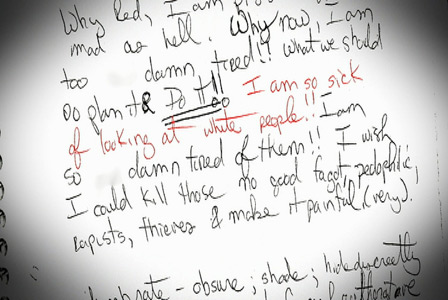 Why Red, I am
mad as hell. Why now, I am
too damn tired!! What we should
Do plan it & Do It!! I am so sick
of looking at white people!! I am
so damn tired of them!! I wish
I could kill those no good fagot, pedophilic,
rapists, thieves & make it painful (very).
- obsure; shade;